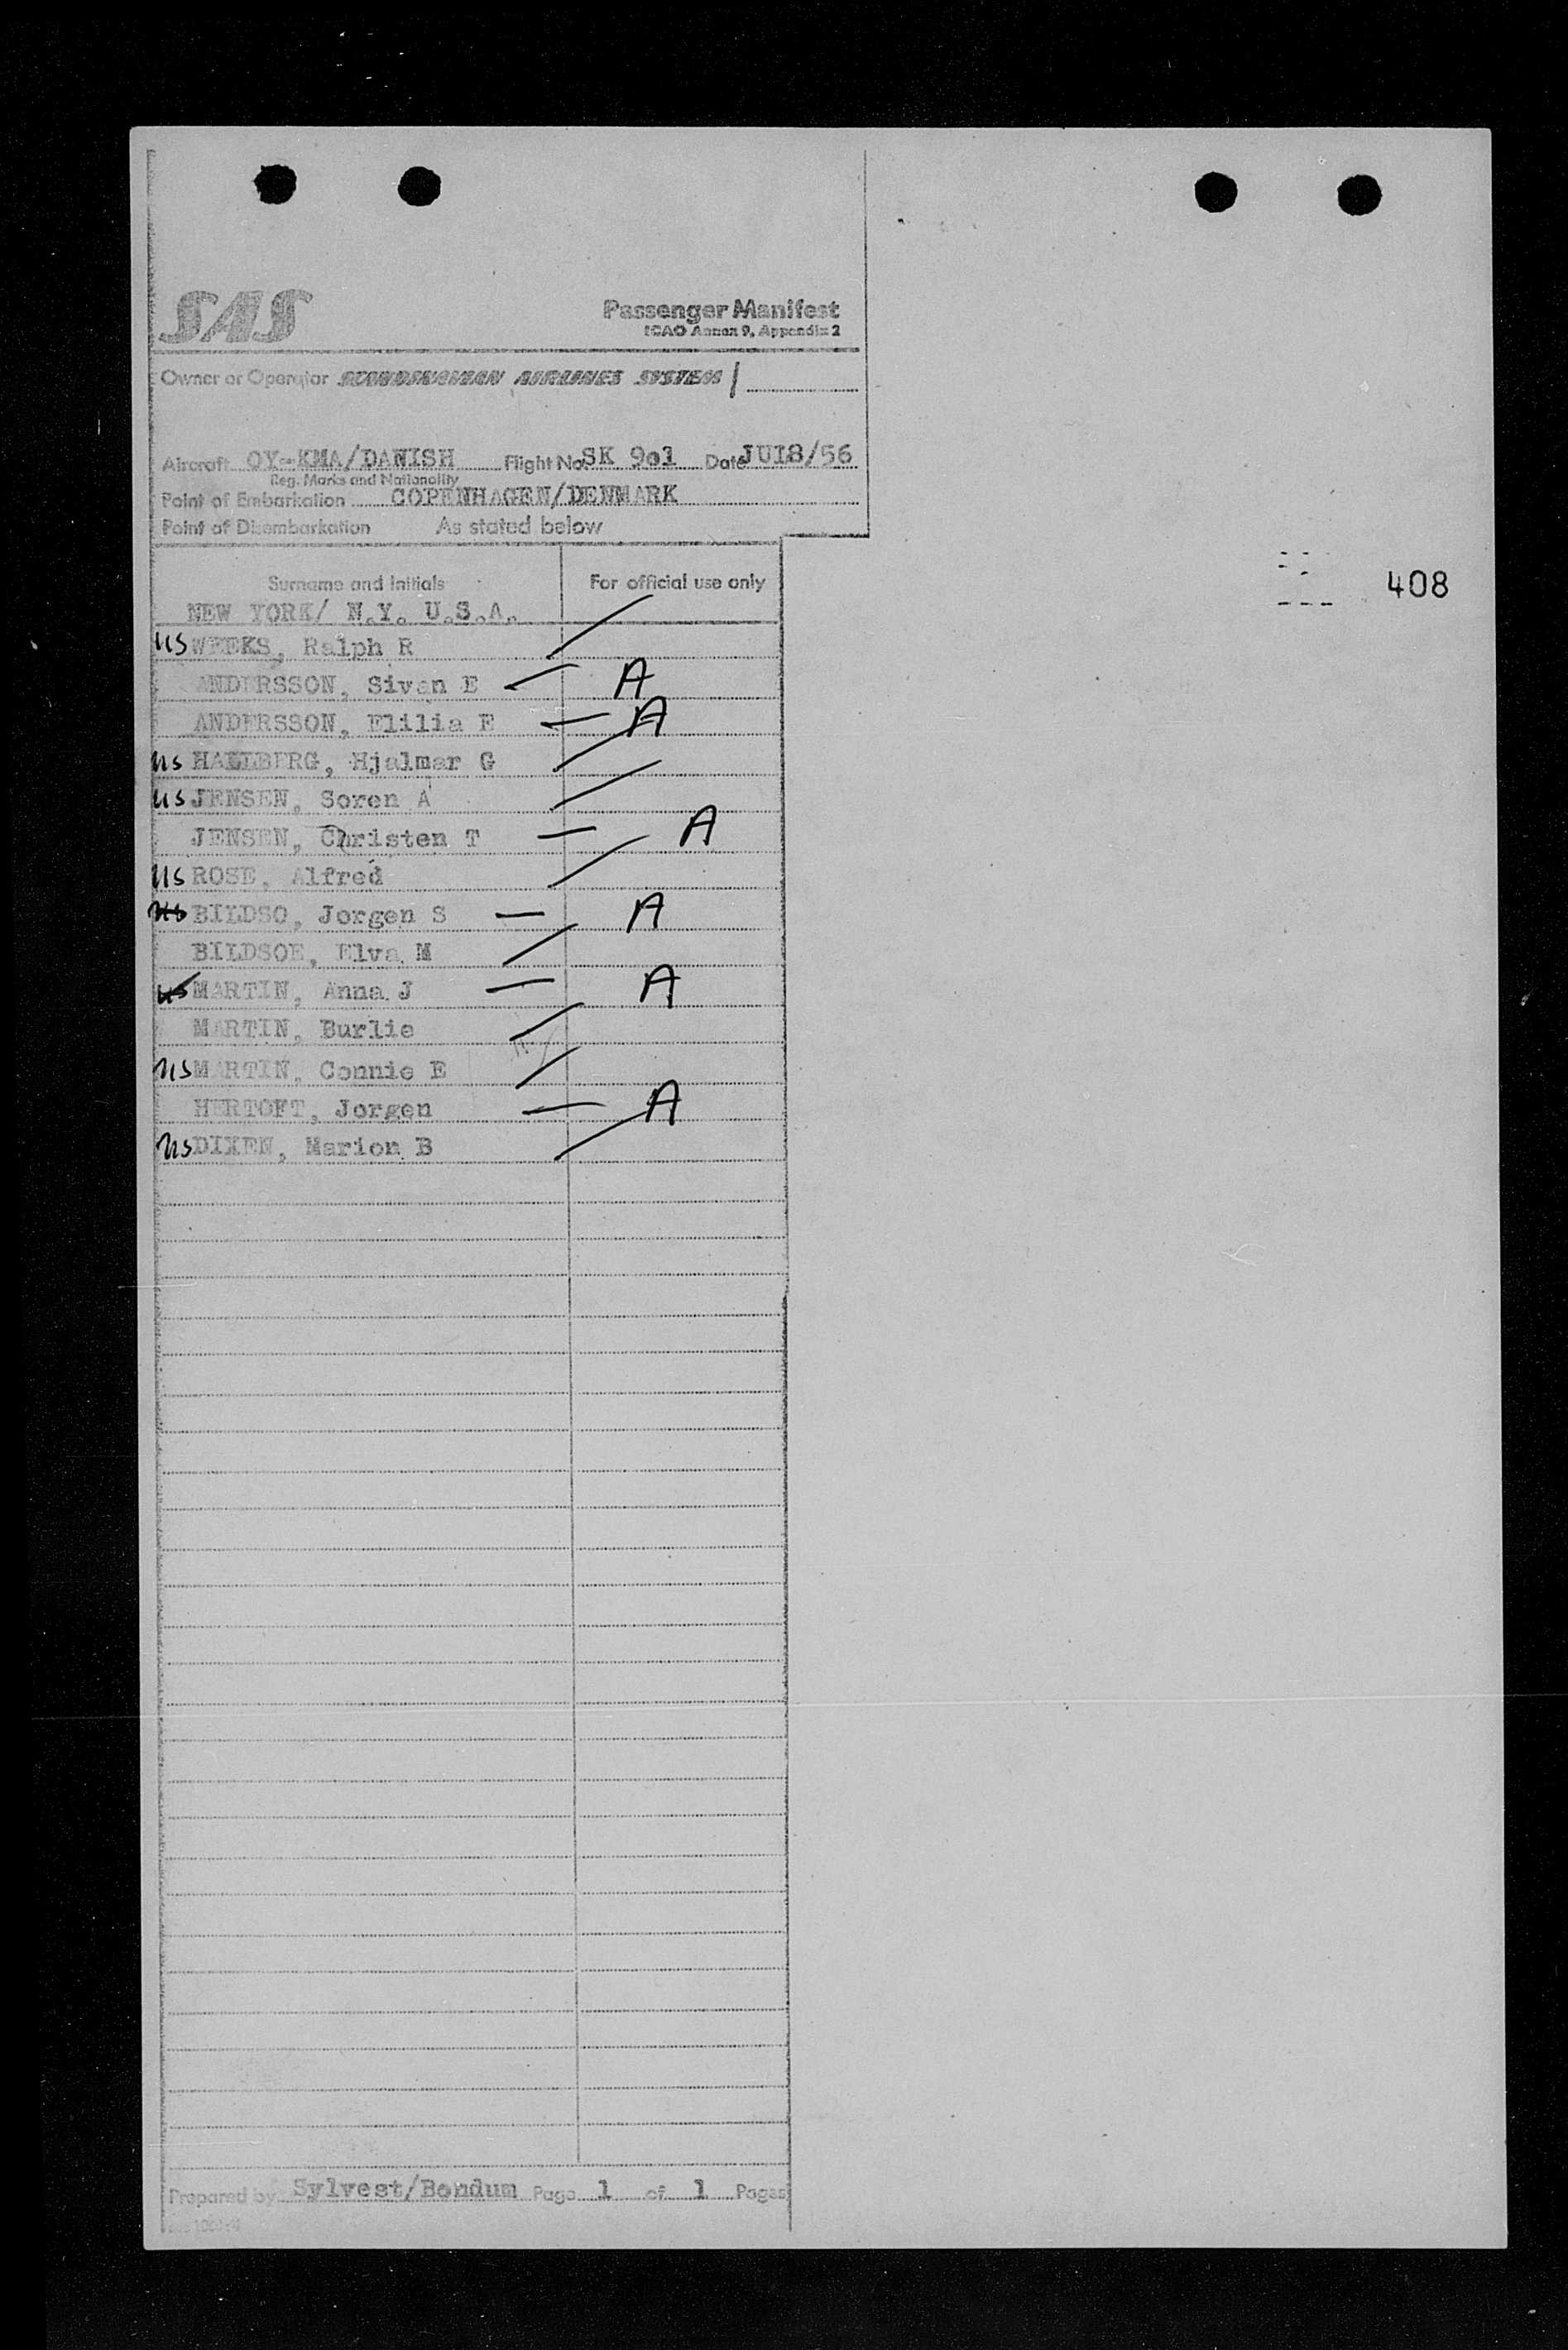 SAS
Passenger Manifest
ICAO Annex 9, Appendix 2
Owner or Operator SCANDINAVIAN AIRLINES SYSTEM
Aircraft OY-KMA/DANISH Flight No. SK 901 Date JUI8/56
Reg. Marks and Nationality
Point of Embarkation COPENHAGEN/DENMARK
Point of Disembarkation As stated below
Surname and Initials For official use only
408
NEW YORK/ N.Y. U.S.A.
US WEEKS, Ralph R
ANDERSSON, Sivan E A
ANDERSSON, Elilia E A
US HALLBERG, Hjalmar G
US JENSEN, Soren A
JENSEN, Christen T A
US ROSE, Alfred
US BILDSO, Jorgen S A
BILDSOE, Elva M
US MARTIN, Anna J A
MARTIN, Burlie
US MARTIN, Connie E
HERTOFT, Jorgen A
US DIXEN, Marion B
Prepared by Sylvest/Bondum Page 1 of 1 Pages